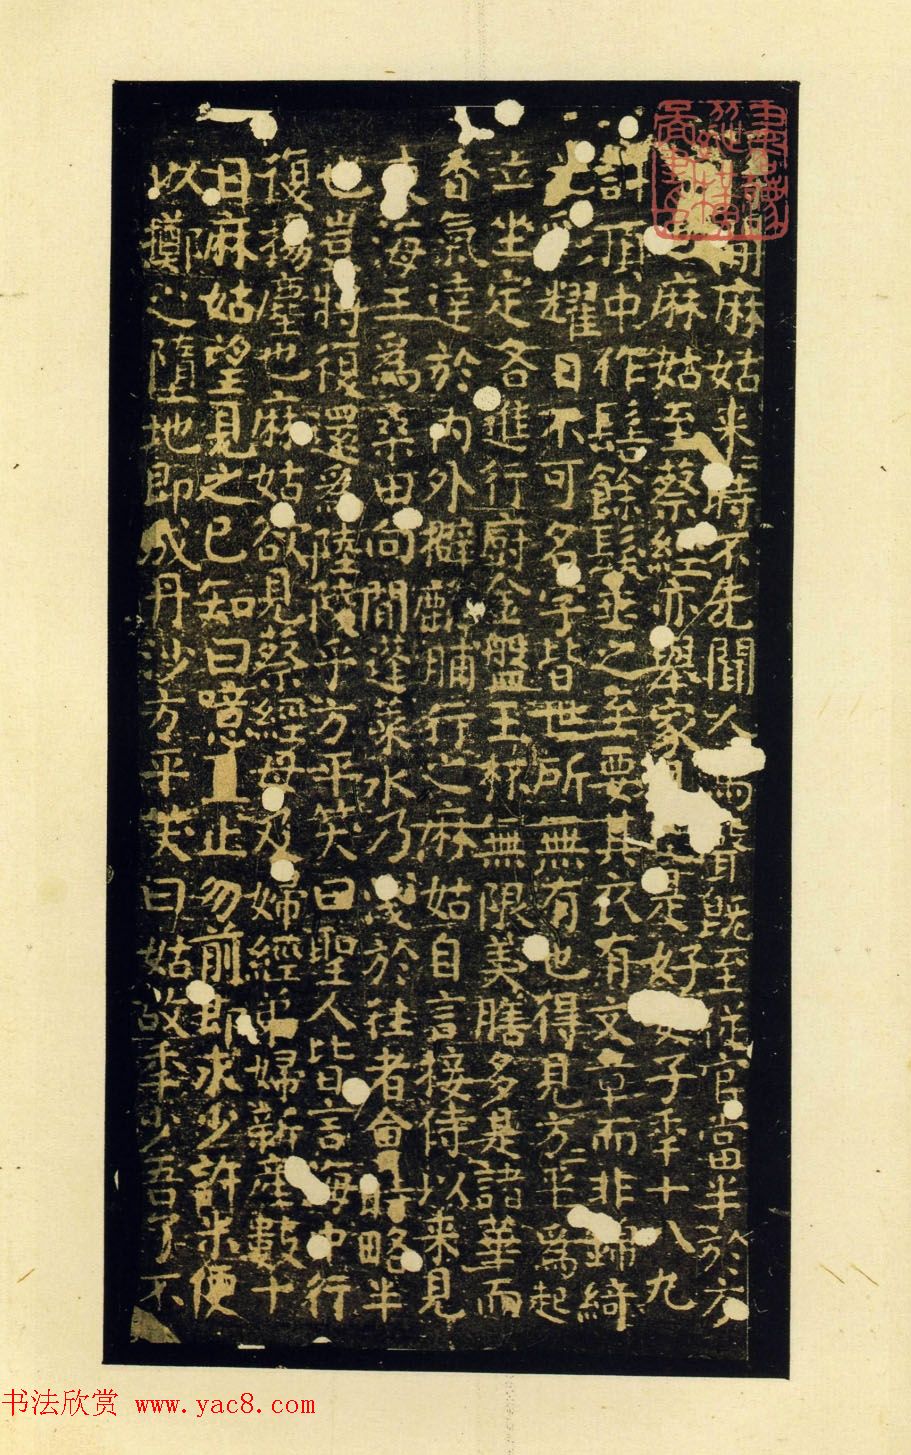 聞麻姑来来時不先聞人馬聲既至從官當半於方
麻姑至蔡經亦舉家見之是好女子年十八九
許頂中作髻餘髮垂之至要其衣有文章而非錦綺
光彩耀日不可名字皆世所無有也得見方平方平為起
立坐定各進行廚金盤玉杯無限美膳多是諸華而
香氣達於內外擗麟脯行之麻姑自言接侍以来見
東海三為桑田向間蓬萊水乃淺於往者會時略半
也豈將復還為陸陵乎方平笑曰聖人皆言海中行
復揚塵也麻姑欲見蔡經母及婦經弟婦新產數十
日麻姑望見之已知曰噫且止勿前即求少許米便
以擲之墮地即成丹沙方平笑曰姑故年少吾了不
书法欣赏 www.yac8.com